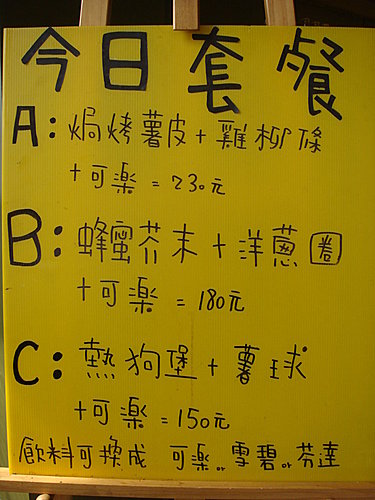 今日套餐
A：焗烤薯皮+雞柳條
+可樂 = 230元
B：蜂蜜芥末+洋蔥圈
+可樂 = 180元
C：熱狗堡+薯球
+可樂 = 150元
飲料可換成 可樂or雪碧or芬達